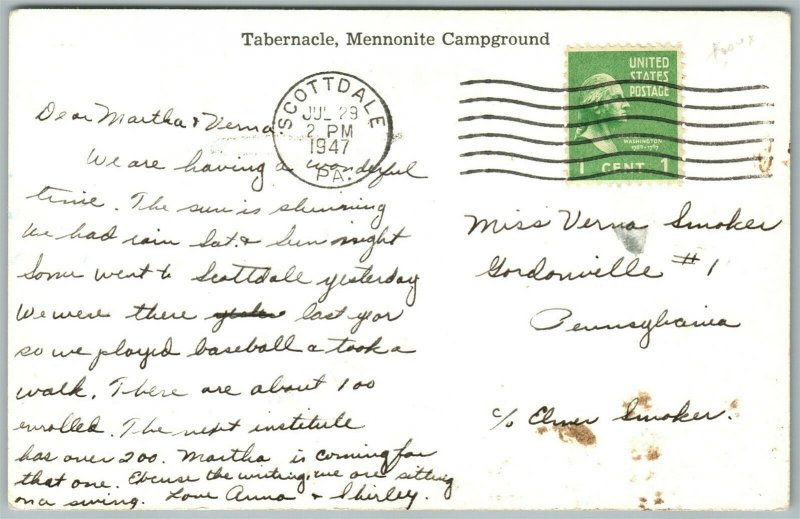 Tabernacle, Mennonite Campground
SCOTTDALE
JUL 29
2 PM
1947
PA.
UNITED
STATES
POSTAGE
WASHINGTON
1789-1797
1 CENT 1
Dear Martha & Verna
We are having a wonderful
time. The sun is shinning
We had rain Sat. & Sun night
Some went to Scottdale yesterday
We were there last year
so we played baseball & took a
walk. There are about 100
enrolled. The next institute
has over 200. Martha is coming for
that one. Excuse the writing, we are sitting
on a swing. Love Anna & Shirley.
Miss Verna Smoker
Gordonville #1
Pennsylvania
c/o Elmer Smoker.